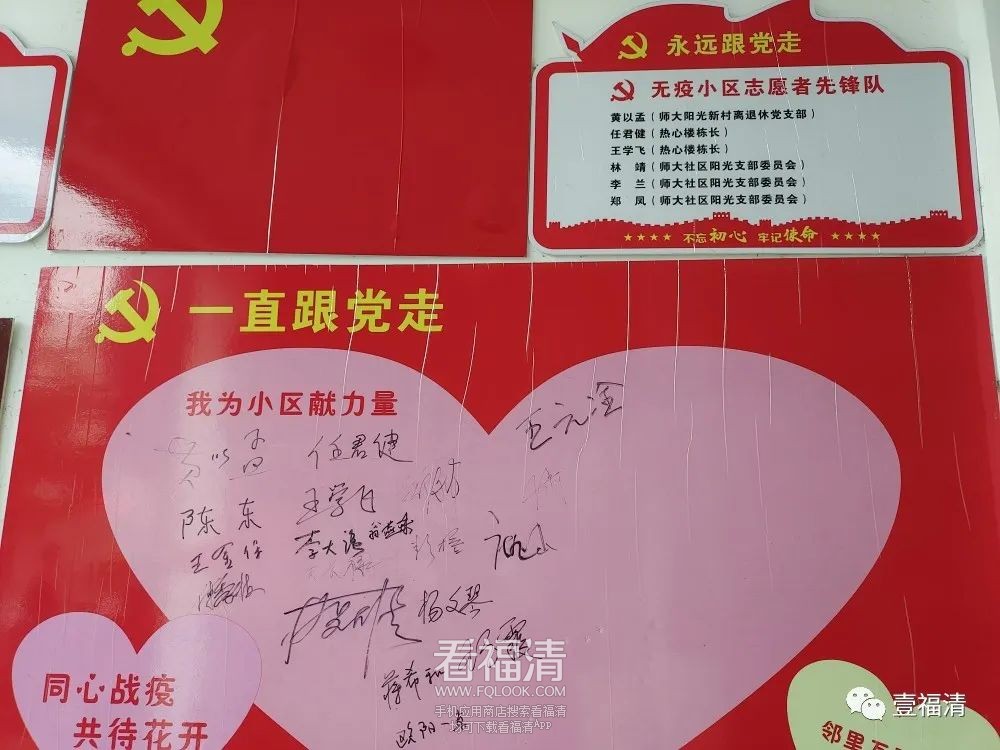 永远跟党走
无疫小区志愿者先锋队
黄以孟（师大阳光新村离退休党支部）
任君健（热心楼栋长）
王学飞（热心楼栋长）
林　靖（师大社区阳光支部委员会）
李　兰（师大社区阳光支部委员会）
郑　凤（师大社区阳光支部委员会）
★★★★ 不忘初心 牢记使命 ★★★★
一直跟党走
我为小区献力量
黄以孟 任君健
王元淦
陈东 王学飞
李大
杨文琴
蒋希
欧阳一
同心战疫
共待花开
邻里
看福清
WWW.FQLOOK.COM
手机应用商店搜索看福清
均可下载看福清App
壹福清